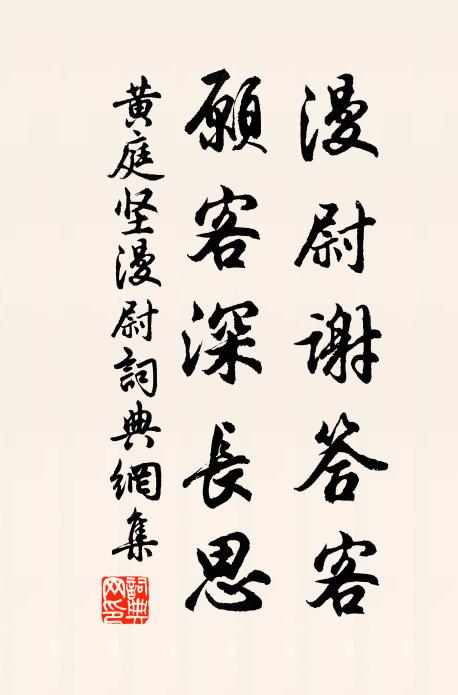 漫尉謝答客
願客深長思
黄庭坚漫尉詞典網集
詞典网印